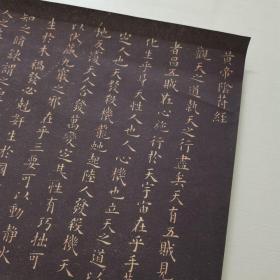 黄帝陰符經
觀天之道執天之行盡矣天有五賊見
者昌五賊在心施行於天宇宙在乎手萬
化生乎身天性人也人心機也立天之道以
定人也天發殺機龍蛇起陸人發殺機天
地反覆天人合發萬變定基性有巧拙可
以伏藏九竅之邪在乎三要可以動靜火
生於木禍發必剋奸生於國
知之